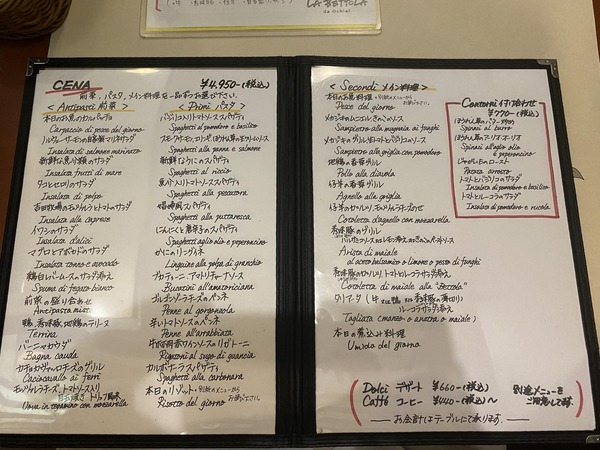 LA BETTOLA
da Ochiai
CENA ¥4,950-(税込)
前菜、パスタ、メイン料理を一品ずつお選び下さい。
< Antipasti 前菜 >
本日のお魚のカルパッチョ
Carpaccio di pesce del giorno
Insalata di salmone marinato
新鮮な魚介類のサラダ
Insalata frutti di mare
タコとセロリのサラダ
Insalata di polpo
Insalata alla caprese
イワシのサラダ
Insalata d'alici
マグロとアボカドのサラダ
Insalata tonno e avocado
鶏白レバームースのサラダ添え
Spuma di fegato bianco
前菜の盛り合わせ
Antipasta mista
Terrina
バーニャカウダ
Bagna cauda
カチョカヴァロチーズのグリル
Caciocavallo ai ferri
Uova in tegamino con mozzarella
< Primi パスタ >
バジリコ入りトマトソーススパゲティ
Spaghetti al pomodoro e basilico
Spaghetti alla panna e salmone
新鮮なウニのスパゲティ
Spaghetti al riccio
魚介入りトマトソーススパゲティ
Spaghetti alla pescatora
娼婦風スパゲティ
Spaghetti alla puttanesca
にんにくと唐辛子のスパゲティ
Spaghetti aglio olio e peperoncino
カニのリングイネ
Linguine alla polpa di granchio
ブカティーニ・アマトリチャーナソース
Bucatini all'amatoriciana
ゴルゴンゾーラチーズのペンネ
Penne al gorgonzola
辛いトマトソースのペンネ
Penne all'arrabbiata
Rigatoni al sugo di guancia
カルボナーラスパゲティ
Spaghetti alla carbonara
本日のリゾット・別紙メニューから
お選び下さい。
Risotto del giorno
< Secondi メイン料理 >
本日のお魚料理・別紙メニューから
お選び下さい。
Pesce del giorno
Sampietro alla mugnaia ai funghi
Sampietro alla griglia con pomodoro
地鶏の香草グリル
Pollo alla diavola
仔羊の香草グリル
Agnello alla griglia
Cotoletta d'agnello con mozzarella
香味豚のグリル
Arista di maiale
al aceto balsamico o limone o pesto di funghi
香味豚のカツレツ、トマトとルーコラサラダ添え
Cotoletta di maiale alla "Bettola"
ルーコラサラダ添え
Tagliata (manzo o anatra o maiale)
本日の煮込み料理
Umido del giorno
Contorni 付け合わせ
¥770-(税込)
ほうれん草のバターソテー
Spinaci al burro
ほうれん草のアーリオ・オーリオ
Spinaci all'aglio olio
e peperoncino
じゃがいものロースト
Patata arrosto
トマトとバジリコのサラダ
Insalata di pomodoro e basilico
トマトとルーコラのサラダ
Insalata di pomodoro e rucola
Dolci デザート ¥660-(税込)
Caffè コーヒー ¥440-(税込)〜
別途メニューを
ご用意してます。
お会計はテーブルにて承ります。